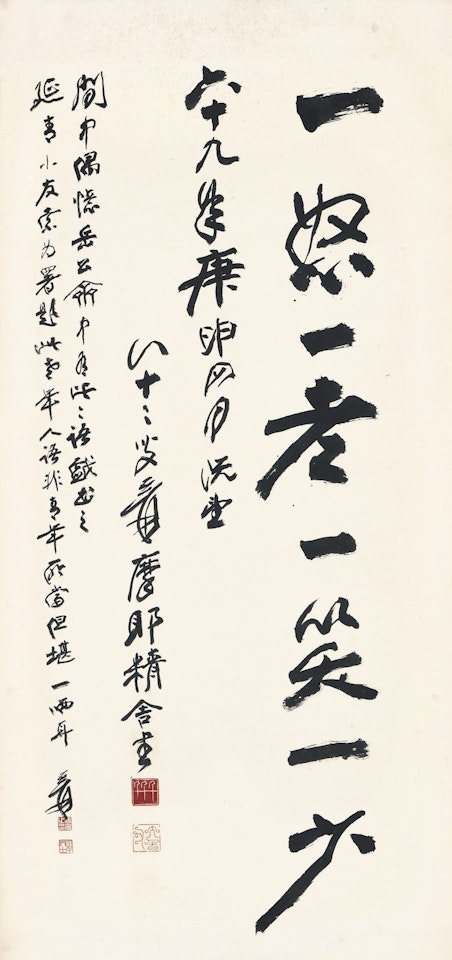 一怒一老一笑一少
六十九年庚申四月既望
八十二叟爰摩耶精舍書
閒中偶憶岳公齋中有此二語戲書之
延青小友索為署題此老年人語非青年所當但堪一哂耳 爰